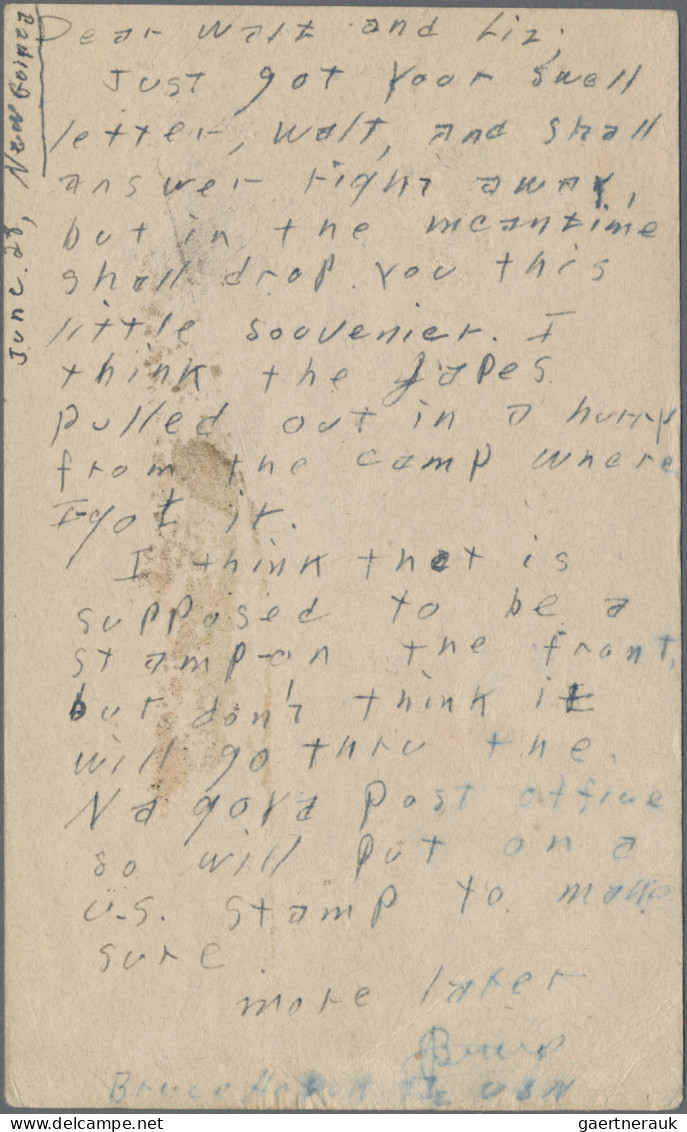 June. 28, New Guinea
Dear Walt and Liz;
Just got your swell
letter, Walt, and shall
answer right away,
but in the meantime
shall drop you this
little souvenier. I
think the Japes
pulled out in a hurry
from the camp where
I got it.
I think that is
supposed to be a
stamp-on the front,
but don't think it
will go thru the
Nagoya post office
so will put on a
U.S. stamp to make
sure.
more later
Bruce
Bruce USN
gaertnerauk